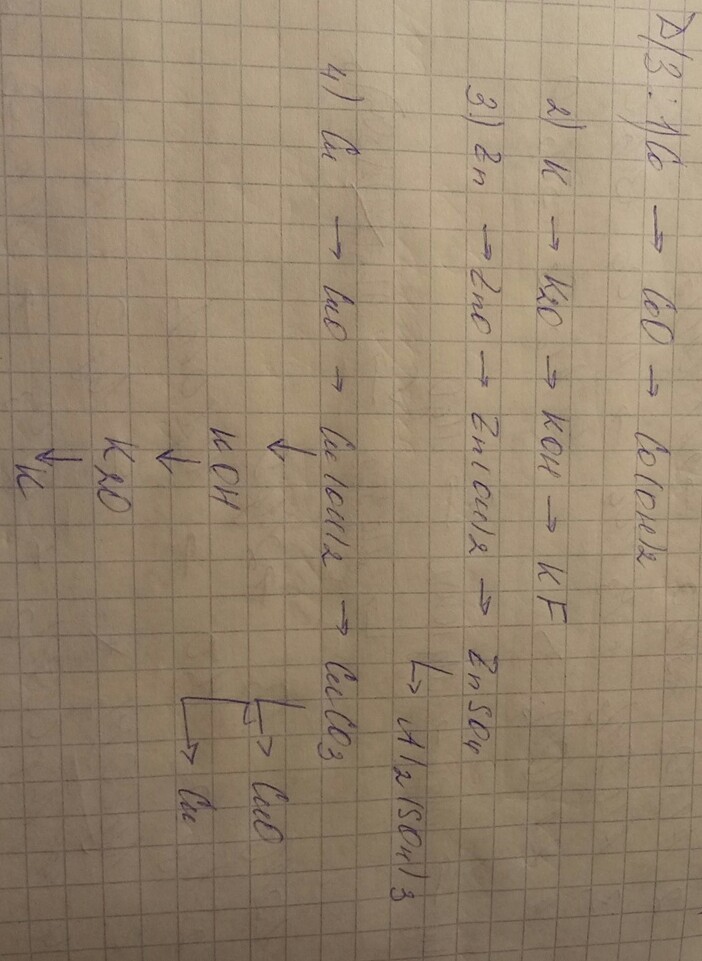 Д/З: 1) Co → CoO → Co(OH)2
2) K → K2O → KOH → KF
3) Zn → ZnO → Zn(OH)2 → ZnSO4
↳ Al2(SO4)3
4) Cu → CuO → Cu(OH)2 → CuCO3
↓ ↳ CuO
KOH ↳ Cu
↓
K2O
↓
K